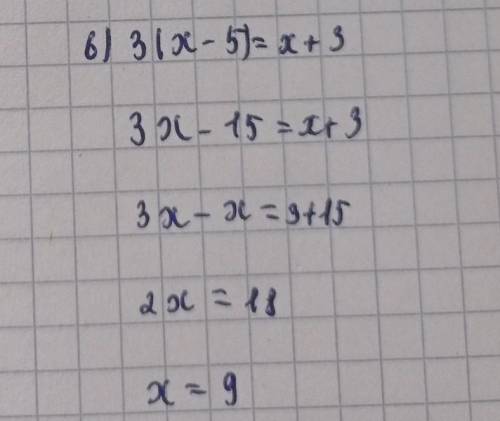 в) 3(x - 5) = x + 3
3x - 15 = x + 3
3x - x = 3 + 15
2x = 18
x = 9